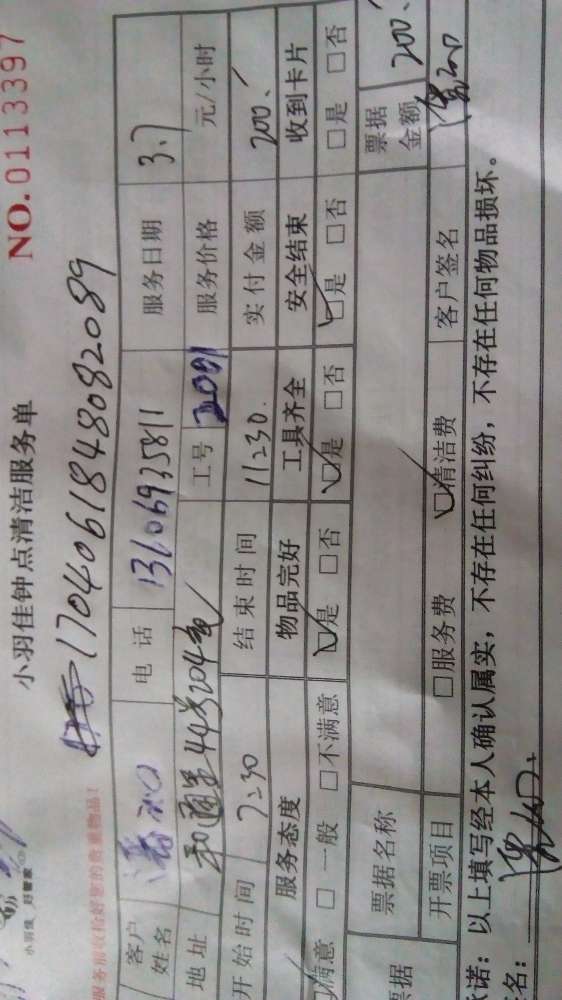 小羽佳 好管家
小羽佳钟点清洁服务单
NO.0113397
服务前收检好您的贵重物品!
1704061848082089
客户姓名 电话 13606935811 服务日期 3.7
地址 44号204室 工号 2091 服务价格 元/小时
开始时间 7:30 结束时间 11:30. 实付金额 200.
服务态度 物品完好 工具齐全 安全结束 收到卡片
满意 □ 一般 □不满意 ☑是 □否 ☑是 □否 ☑是 □否 □是 □否
票据 票据名称 票据金额 200.
开票项目 □服务费 ☑清洁费 客户签名
承诺: 以上填写经本人确认属实,不存在任何纠纷,不存在任何物品损坏。
签名: